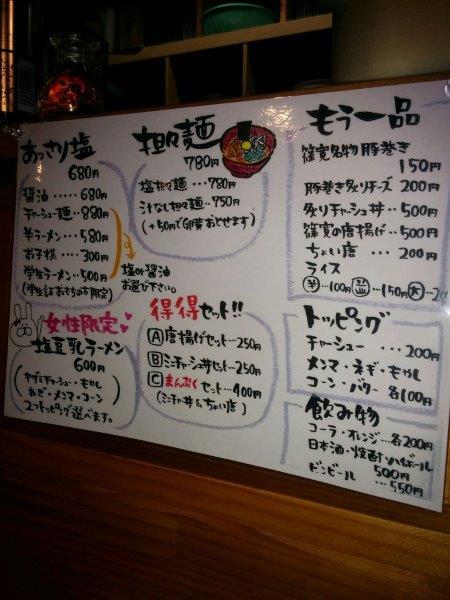 あっさり塩
680円
醤油……680円
チャーシュー麺…880円
半ラーメン……580円
お子様……300円
学生ラーメン…500円
(学生証おもちの方限定)
塩or醤油
お選び下さい。
女性限定
塩豆乳ラーメン
600円
キザミチャーシュー・もやし
ねぎ・メンマ・コーン
2つトッピング選べます。
担々麺
780円
塩担々麺…780円
汁なし担々麺…750円
(+50円で卵黄おとせます)
得得セット!!
A 唐揚げセット…250円
B ミニチャーシュー丼セット…250円
C まんぷくセット…400円
(ミニチャ丼&ちょい唐)
もう一品
篠寛名物豚巻き
150円
豚巻き炙りチーズ 200円
炙りチャーシュー丼…500円
篠寛の唐揚げ…500円
ちょい唐…200円
ライス
半…100円 並…150円 大…20
トッピング
チャーシュー……200円
メンマ・ネギ・もやし
コーン・バター…各100円
飲み物
コーラ・オレンジ…各200円
日本酒・焼酎・ハイボール
500円
ビンビール…550円